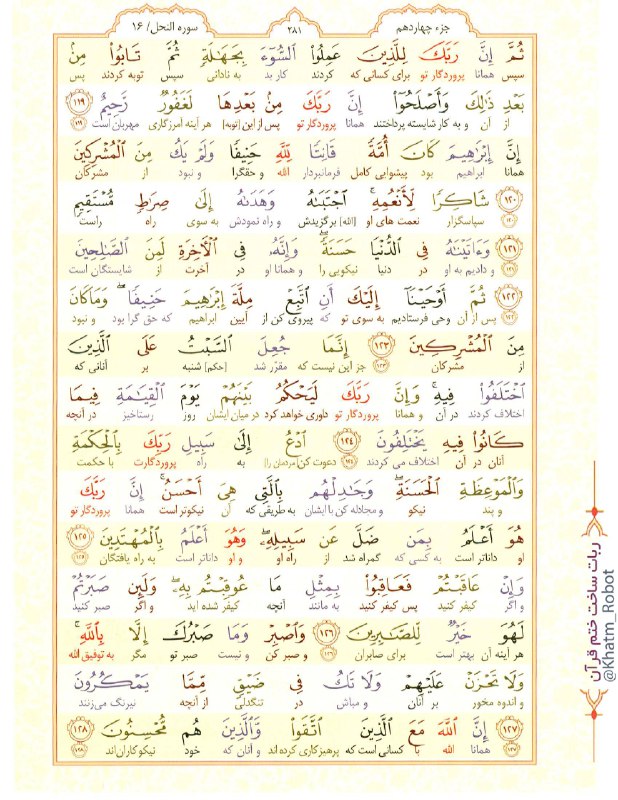 جزء چهاردهم
۲۸۱
سوره النحل/ ۱۶
ثُمَّ إِنَّ رَبَّكَ لِلَّذِينَ عَمِلُوا۟ ٱلسُّوٓءَ بِجَهَـٰلَةٍ ثُمَّ تَابُوا۟ مِنۢ
سپس همانا پروردگار تو برای کسانی که کردند کار بد به نادانی سپس توبه کردند پس
بَعْدِ ذَٰلِكَ وَأَصْلَحُوٓا۟ إِنَّ رَبَّكَ مِنۢ بَعْدِهَا لَغَفُورٌ رَّحِيمٌ ۱۱۹
از آن و به کار شایسته پرداختند همانا پروردگار تو پس از این [توبه] هر آینه آمرزگاری مهربان است ۱۱۹
إِنَّ إِبْرَٰهِيمَ كَانَ أُمَّةً قَانِتًا لِّلَّهِ حَنِيفًا وَلَمْ يَكُ مِنَ ٱلْمُشْرِكِينَ
همانا ابراهیم بود پیشوایی کامل فرمانبردار الله و حقگرا و نبود از مشرکان
۱۲۰ شَاكِرًا لِّأَنْعُمِهِ ۚ ٱجْتَبَىٰهُ وَهَدَىٰهُ إِلَىٰ صِرَٰطٍ مُّسْتَقِيمٍ
۱۲۰ سپاسگزار نعمت های او [الله] برگزیدش و راه نمودش به سوی راه راست
۱۲۱ وَءَاتَيْنَـٰهُ فِى ٱلدُّنْيَا حَسَنَةً ۖ وَإِنَّهُۥ فِى ٱلْأَخِرَةِ لَمِنَ ٱلصَّـٰلِحِينَ
۱۲۱ و دادیم به او در دنیا نیکویی را و همانا او در آخرت از شایستگان است
۱۲۲ ثُمَّ أَوْحَيْنَآ إِلَيْكَ أَنِ ٱتَّبِعْ مِلَّةَ إِبْرَٰهِيمَ حَنِيفًا ۖ وَمَا كَانَ
۱۲۲ پس از آن وحی فرستادیم به سوی تو که پیروی کن از آیین ابراهیم که حق گرا بود و نبود
مِنَ ٱلْمُشْرِكِينَ ۱۲۳ إِنَّمَا جُعِلَ ٱلسَّبْتُ عَلَى ٱلَّذِينَ
از مشرکان ۱۲۳ جز این نیست که مقرّر شد [حکم] شنبه بر آنانی که
ٱخْتَلَفُوا۟ فِيهِ ۚ وَإِنَّ رَبَّكَ لَيَحْكُمُ بَيْنَهُمْ يَوْمَ ٱلْقِيَـٰمَةِ فِيمَا
اختلاف کردند در آن و همانا پروردگار تو داوری خواهد کرد در میان ایشان روز رستاخیز در آنچه
كَانُوا۟ فِيهِ يَخْتَلِفُونَ ۱۲۴ ٱدْعُ إِلَىٰ سَبِيلِ رَبِّكَ بِٱلْحِكْمَةِ
آنان در آن اختلاف می کردند ۱۲۴ دعوت کن [مردمان را] به راه پروردگارت با حکمت
وَٱلْمَوْعِظَةِ ٱلْحَسَنَةِ ۖ وَجَـٰدِلْهُم بِٱلَّتِى هِىَ أَحْسَنُ ۚ إِنَّ رَبَّكَ
و پند نیکو و مجادله کن با ایشان به طریقی که آن نیکوتر است همانا پروردگار تو
هُوَ أَعْلَمُ بِمَن ضَلَّ عَن سَبِيلِهِۦ ۖ وَهُوَ أَعْلَمُ بِٱلْمُهْتَدِينَ ۱۲۵
او داناتر است به کسی که گمراه شد از راه او و او داناتر است به راه یافتگان ۱۲۵
وَإِنْ عَاقَبْتُمْ فَعَاقِبُوا۟ بِمِثْلِ مَا عُوقِبْتُم بِهِۦ ۖ وَلَئِن صَبَرْتُمْ
و اگر کیفر کنید پس کیفر کنید به مانند آنچه کیفر شده اید و اگر صبر کنید
لَهُوَ خَيْرٌ لِّلصَّـٰبِرِينَ ۱۲۶ وَٱصْبِرْ وَمَا صَبْرُكَ إِلَّا بِٱللَّهِ ۚ
هر آینه آن بهتر است برای صابران ۱۲۶ و صبر کن و نیست صبر تو مگر به توفیق الله
وَلَا تَحْزَنْ عَلَيْهِمْ وَلَا تَكُ فِى ضَيْقٍ مِّمَّا يَمْكُرُونَ
و اندوه مخور بر آنان و مباش در تنگدلی از آنچه نیرنگ می‌زنند
۱۲۷ إِنَّ ٱللَّهَ مَعَ ٱلَّذِينَ ٱتَّقَوا۟ وَّٱلَّذِينَ هُم مُّحْسِنُونَ ۱۲۸
۱۲۷ همانا الله با کسانی است که پرهیزکاری کرده اند و آنان که خود نیکوکاران‌اند ۱۲۸
ربات ساخت ختم قرآن
@Khatm_Robot